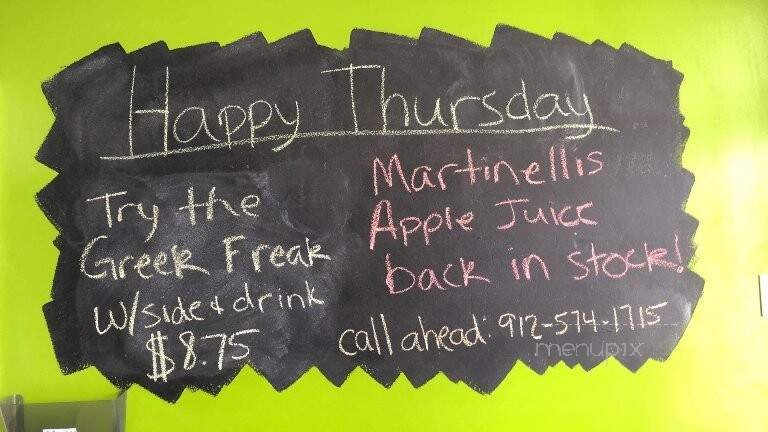 Happy Thursday
Try the
Greek Freak
w/side & drink
$8.75
Martinellis
Apple Juice
back in stock!
call ahead: 912-574-1715
menupix